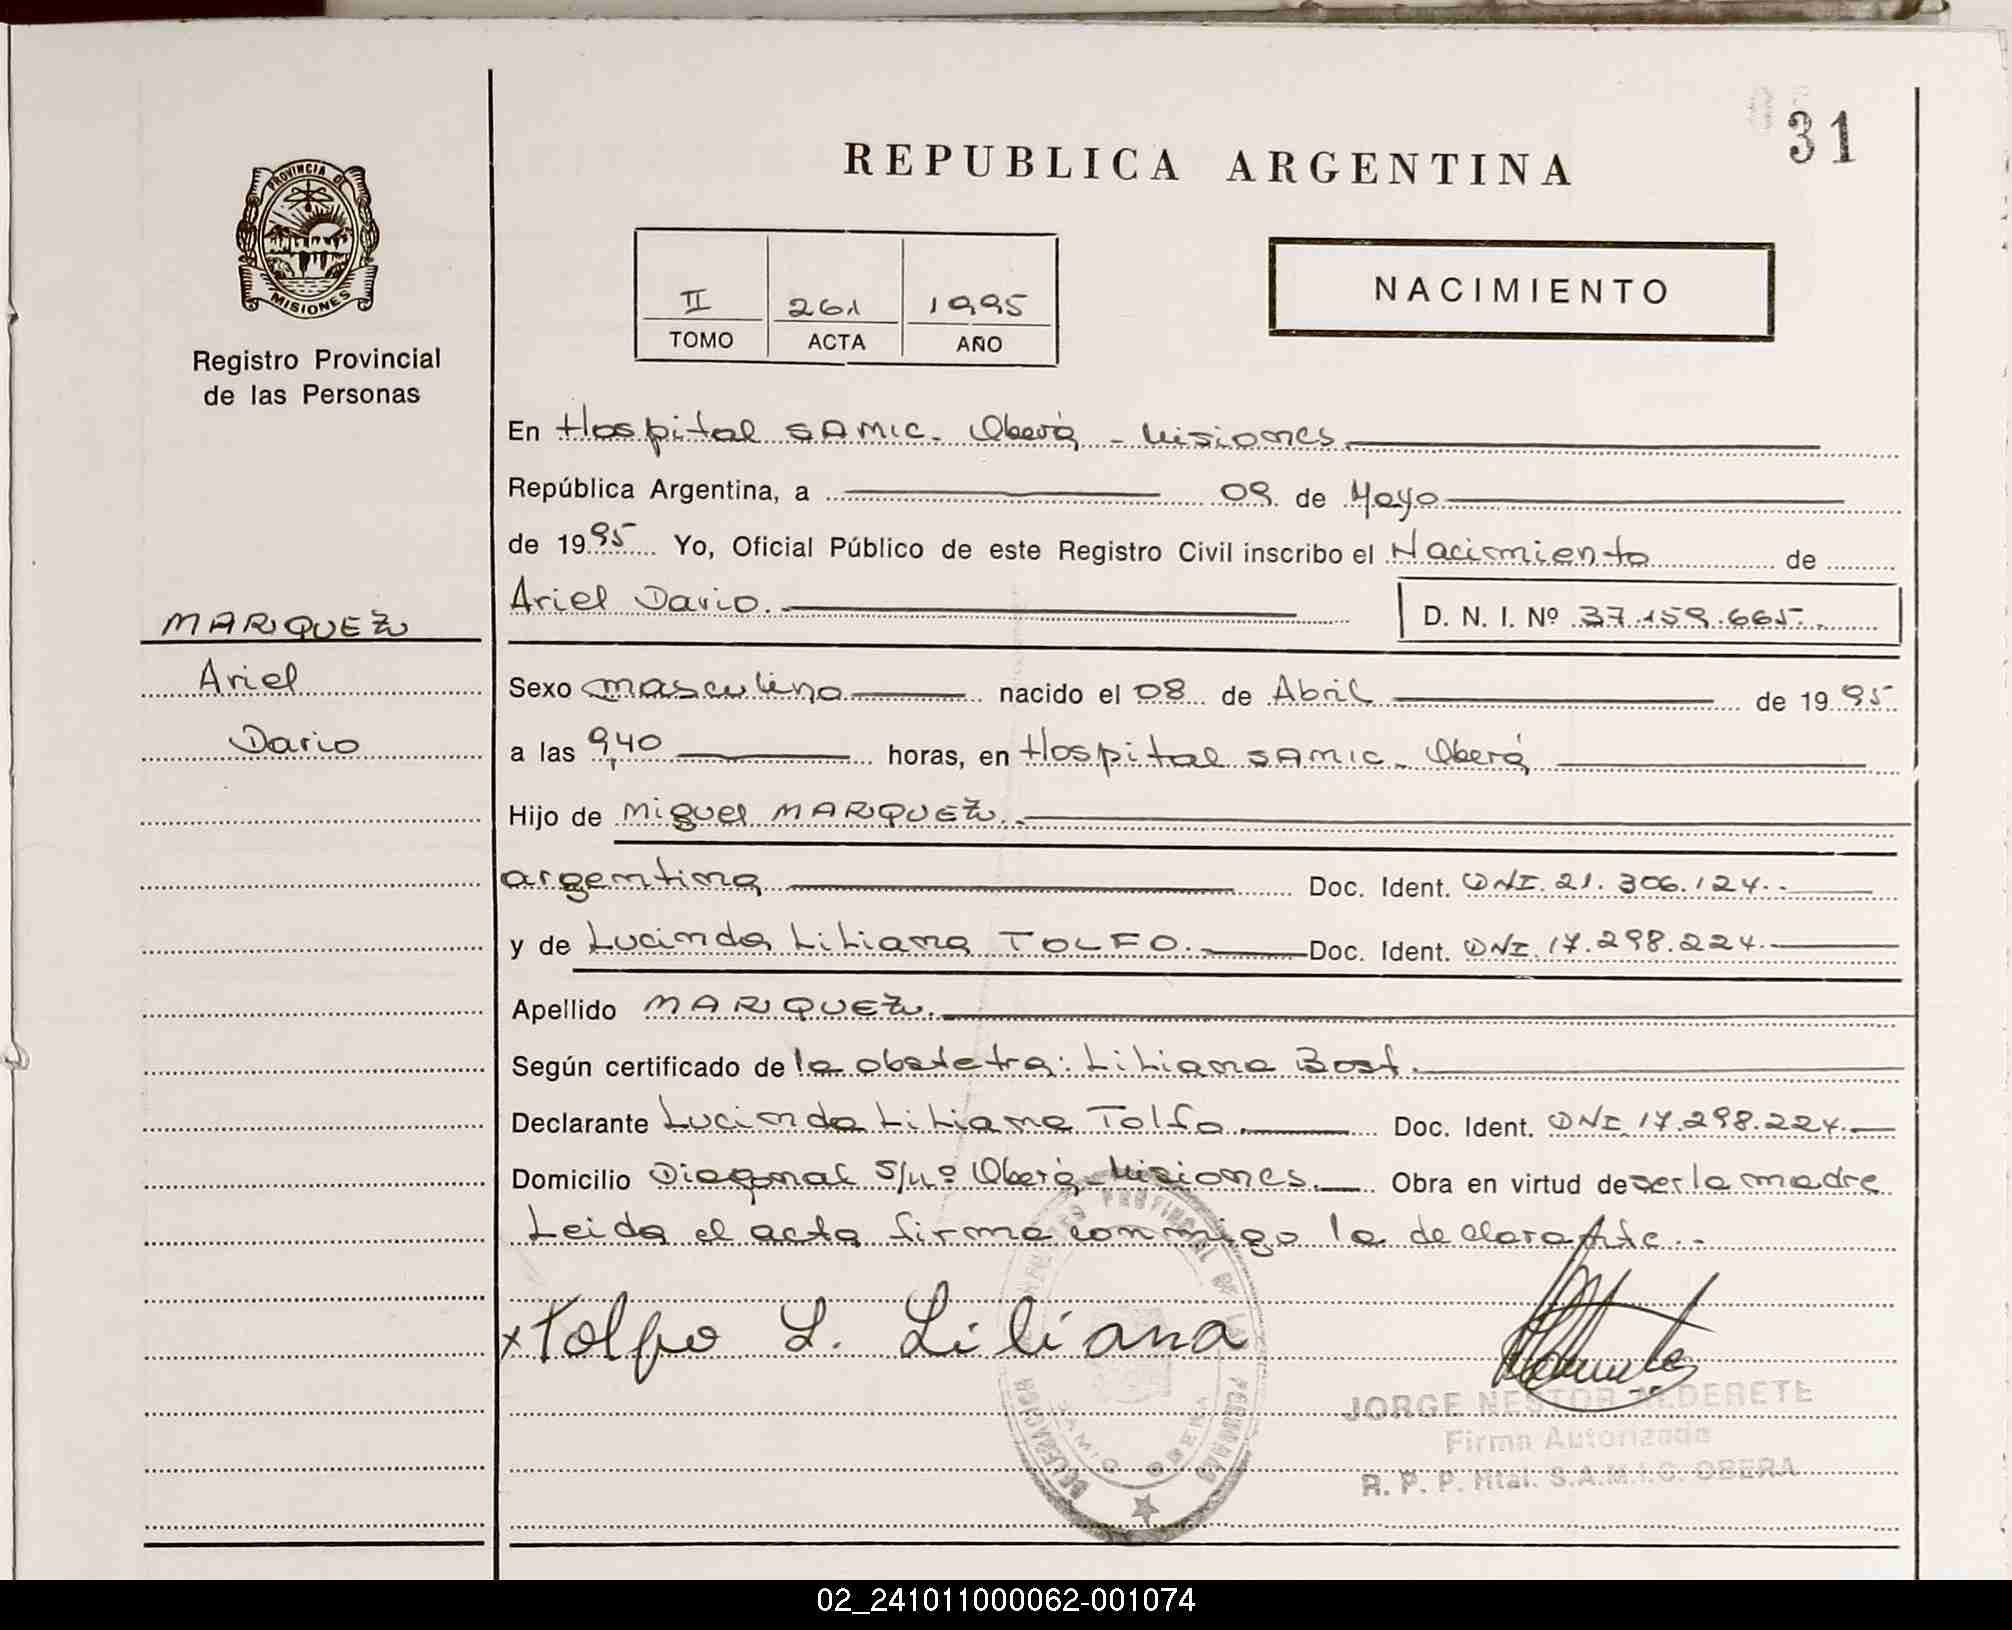 31
REPUBLICA ARGENTINA
PROVINCIA DE
MISIONES
Registro Provincial
de las Personas
II 261 1995
TOMO ACTA AÑO
NACIMIENTO
En Hospital SAMIC. Oberá - Misiones.
República Argentina, a 09 de Mayo
de 1995 Yo, Oficial Público de este Registro Civil inscribo el Nacimiento de
Ariel Dario.
D. N. I. Nº 37.159.665.
MARQUEZ
Ariel
Dario
Sexo masculino nacido el 08 de Abril de 1995
a las 9,40 horas, en Hospital SAMIC. Oberá
Hijo de Miguel MARQUEZ.
argentina Doc. Ident. DNI. 21.306.124.
y de Lucinda Liliana TOLFO. Doc. Ident. DNI. 17.298.224.
Apellido MARQUEZ.
Según certificado de la obstetra: Liliana Bost.
Declarante Lucinda Liliana Tolfo. Doc. Ident. DNI. 17.298.224.
Domicilio Diagonal S/Nº Oberá - Misiones. Obra en virtud de ser la madre
Leida el acta firma conmigo la declarante.
x Tolfo L. Liliana
JORGE NESTOR ALDERETE
Firma Autorizada
R. P. P. Htal. S.A.M.I.C. OBERA
PROVINCIAL DE LAS PERSONAS
SAMIC OBERA
02_241011000062-001074